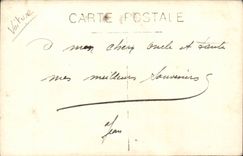 CARTE POSTALE
Voiture
à mes chers oncle et tante
mes meilleurs souvenirs
Jean